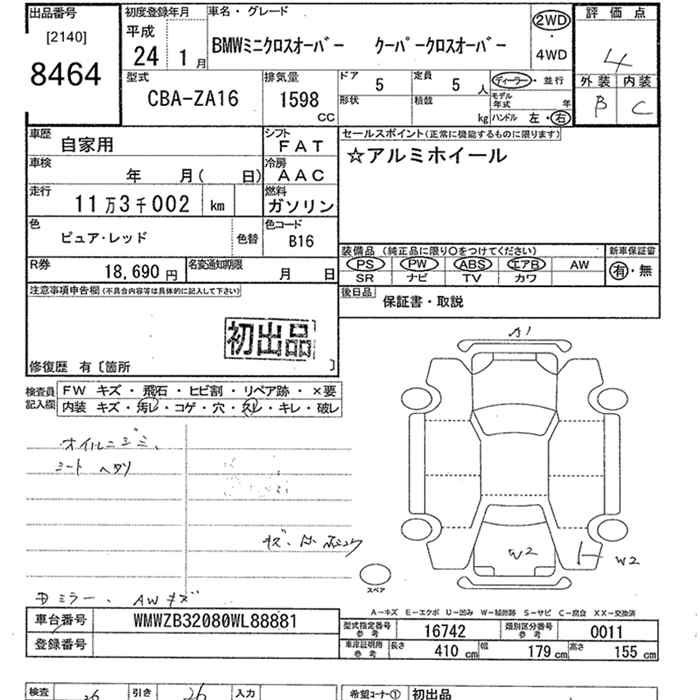 出品番号
[2140]
8464
初度登録年月
平成
24 1月
車名・グレード
BMWミニクロスオーバー クーパークロスオーバー
2WD
・
4WD
評価点
4
外装 内装
B C
型式
CBA-ZA16
排気量
1598
CC
ドア 5
定員 5 人
形状
積載 kg
ディーラー・並行
モデル年式 年
ハンドル 左・右
車歴 自家用
シフト FAT
車検 年 月( 日)
冷房 AAC
走行 11万3千002 km
燃料 ガソリン
色 ピュア・レッド
色替
色コード B16
R券 18,690円
名変通知期限 月 日
セールスポイント(正常に機能するものに限ります)
☆アルミホイール
装備品(純正品に限り○をつけてください)
PS PW ABS エアB AW
SR ナビ TV カワ
新車保証書
有・無
後日品 保証書・取説
注意事項申告欄(不具合内容等は具体的に記入して下さい)
初出品
修復歴 有〔箇所 〕
検査員記入欄
FW キズ・飛石・ヒビ割・リペア跡・×要
内装 キズ・汚レ・コゲ・穴・スレ・キレ・破レ
オイルニジミ、
シート ヘタリ
ミラー、AWキズ
A1
W2
W2
スペア
A-キズ E-エクボ U-凹み W-補修跡 S-サビ C-腐食 XX-交換済
車台番号 WMWZB32080WL88881
登録番号
型式指定番号 参考 16742
類別区分番号 参考 0011
車庫証明用 参考 長さ 410cm 幅 179cm 高さ 155cm
検査 26
引き 26
入力
希望コーナー① 初出品